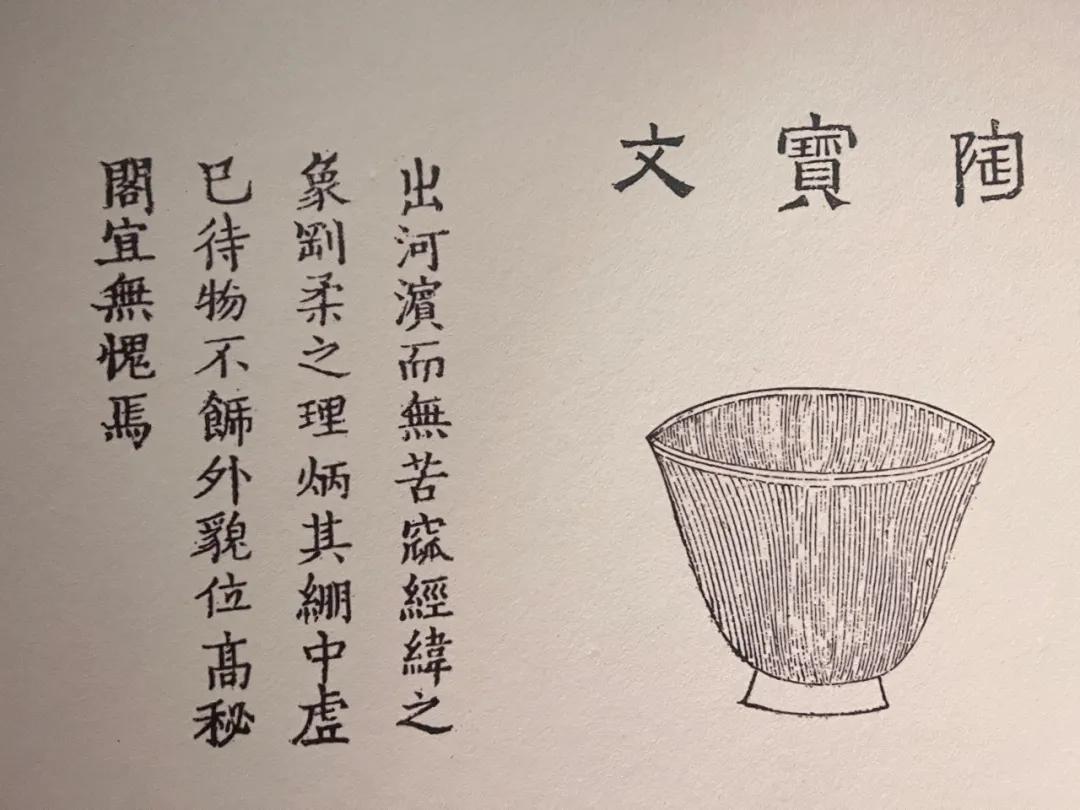 陶寶文
出河濵而無苦窳經緯之
象剛柔之理炳其綳中虚
已待物不飾外貌位髙秘
閣宜無愧焉